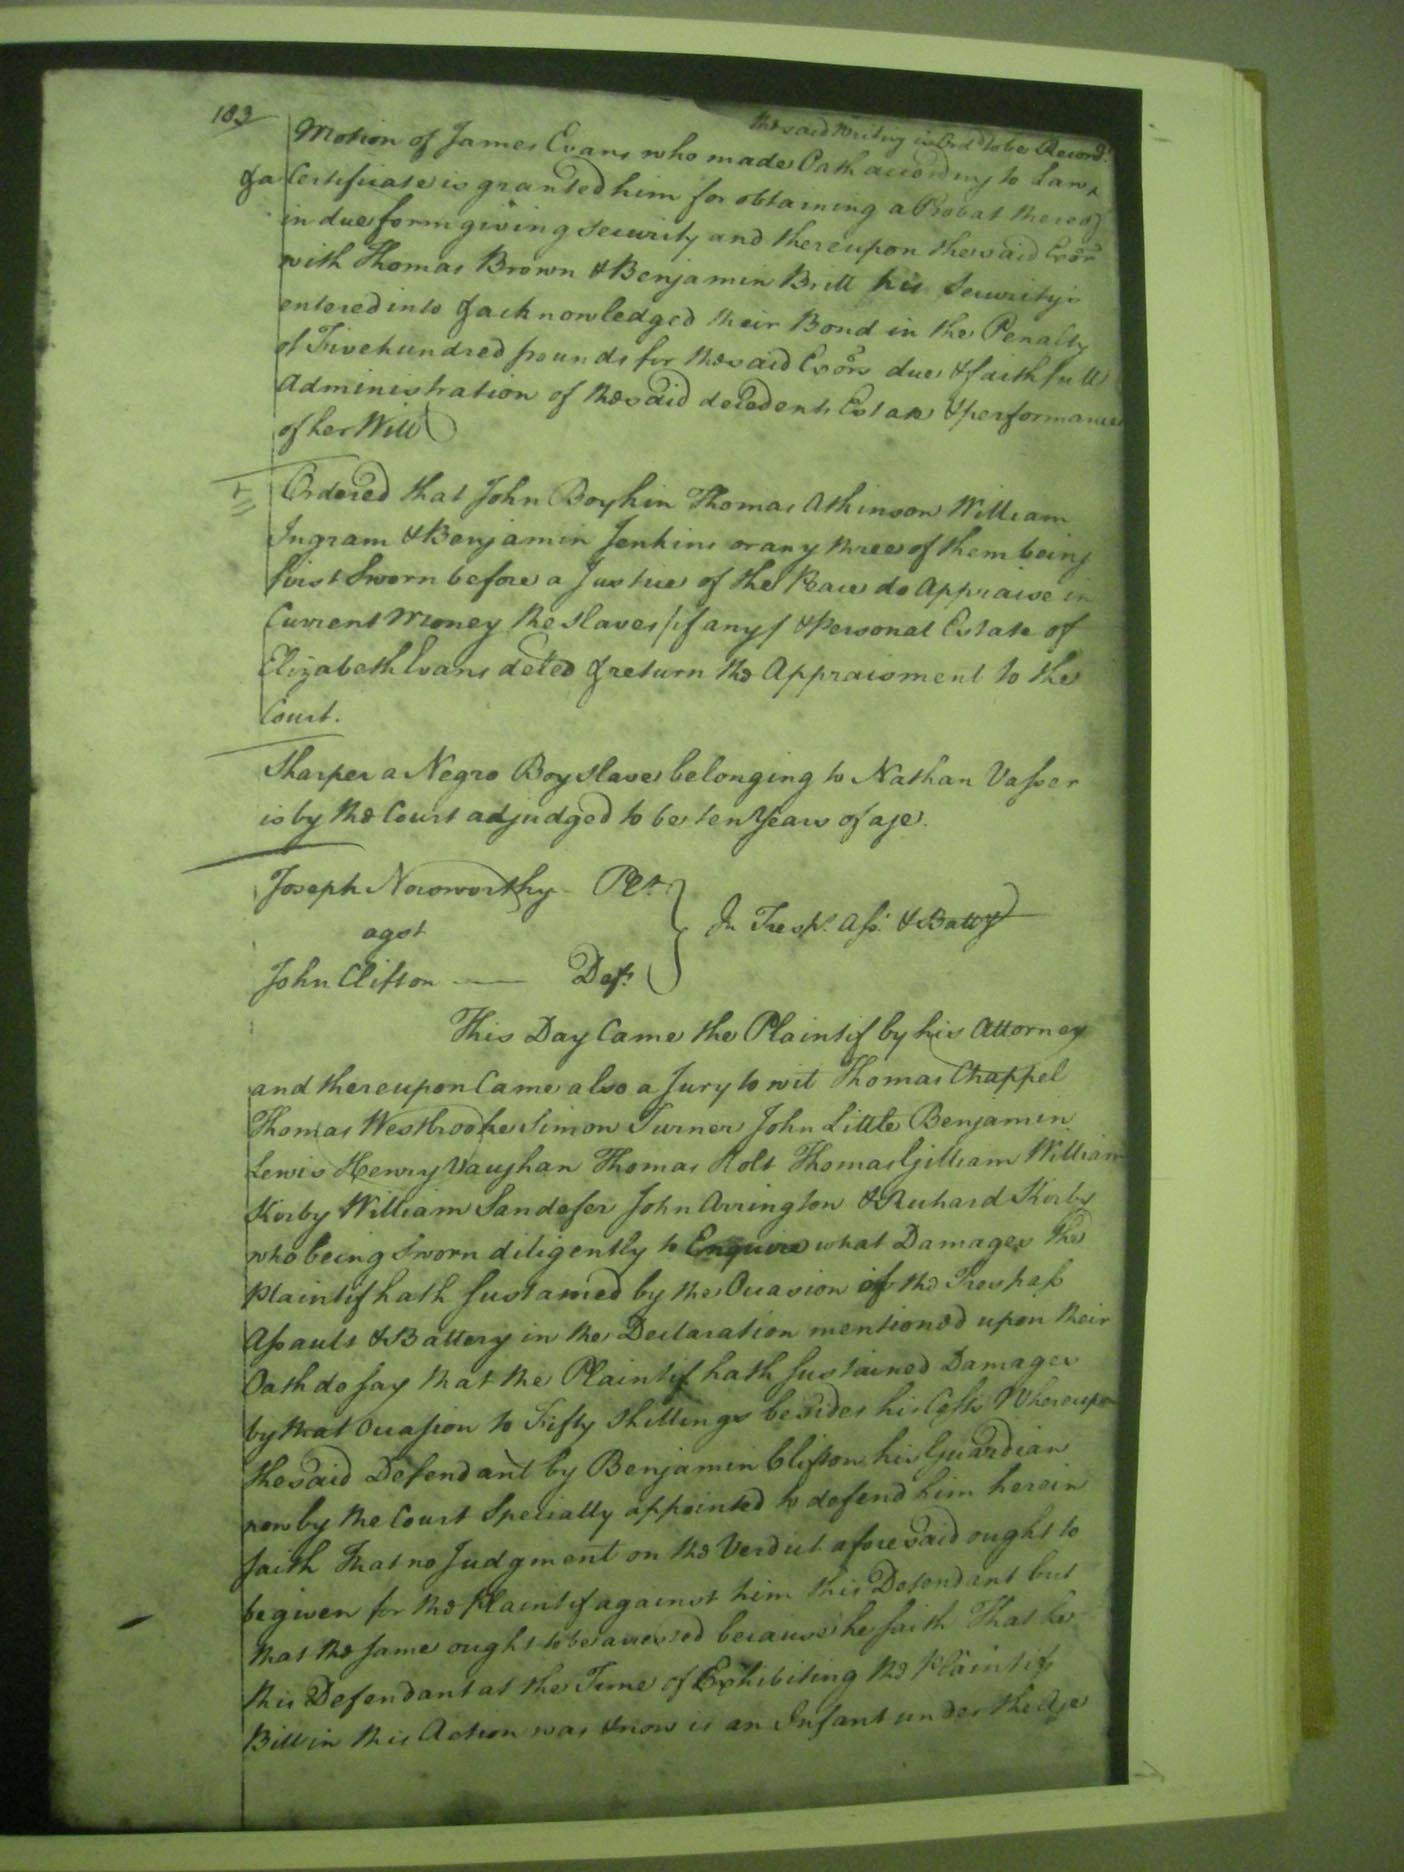 183
the said Writing is Ord. to be Record.
Motion of James Evans who made Oath according to Law ^
& a Certificate is granted him for obtaining a Probat thereof
in due form giving Security and thereupon the said Exõr
with Thomas Brown & Benjamin Britt his Security's
entered into & acknowledged their Bond in the Penalty
of Five hundred pounds for the said Exõrs due & faithfull
Administration of the said decedents Estate & performance
of her Will
Ordered that John Boykin Thomas Atkinson William
Ingram & Benjamin Jenkins or any three of them being
first Sworn before a Justice of the Peace do Appraise in
Current Money the Slaves /if any/ & Personal Estate of
Elizabeth Evans deced & return the Appraisment to the
Court.
Sharper a Negro Boy Slave belonging to Nathan Vasser
is by the Court adjudged to be ten Years of age.
Joseph Norsworthy Plt.
In Tresps. Ass. & Batty
agst
John Clifton — Deft.
This Day Came the Plaintif by his Attorney
and thereupon Came also a Jury to wit Thomas Chappel
Thomas Westbrooke Simon Turner John Little Benjamin
Lewis Henry Vaughan Thomas Holt Thomas Gilliam William
Kirby William Sandefer John Arrington & Richard Kirby
who being Sworn diligently to Enquire what Damages the
Plaintif hath Sustained by the Ocasion of the Trespass
Assault & Battery in the Declaration mentioned upon their
Oath do say that the Plaintif hath Sustained Damages
by that Ocasion to Fifty Shillings besides his Costs Whereupon
the said Defendant by Benjamin Clifton his Guardian
now by the Court Specially appointed to defend him herein
saith That no Judgment on the Verdict aforesaid ought to
be given for the Plaintif against him this Defendant but
that the same ought to be arrested because he saith That he
this Defendant at the Time of Exhibiting the Plaintifs
Bill in this Action was & now is an Infant under the Age